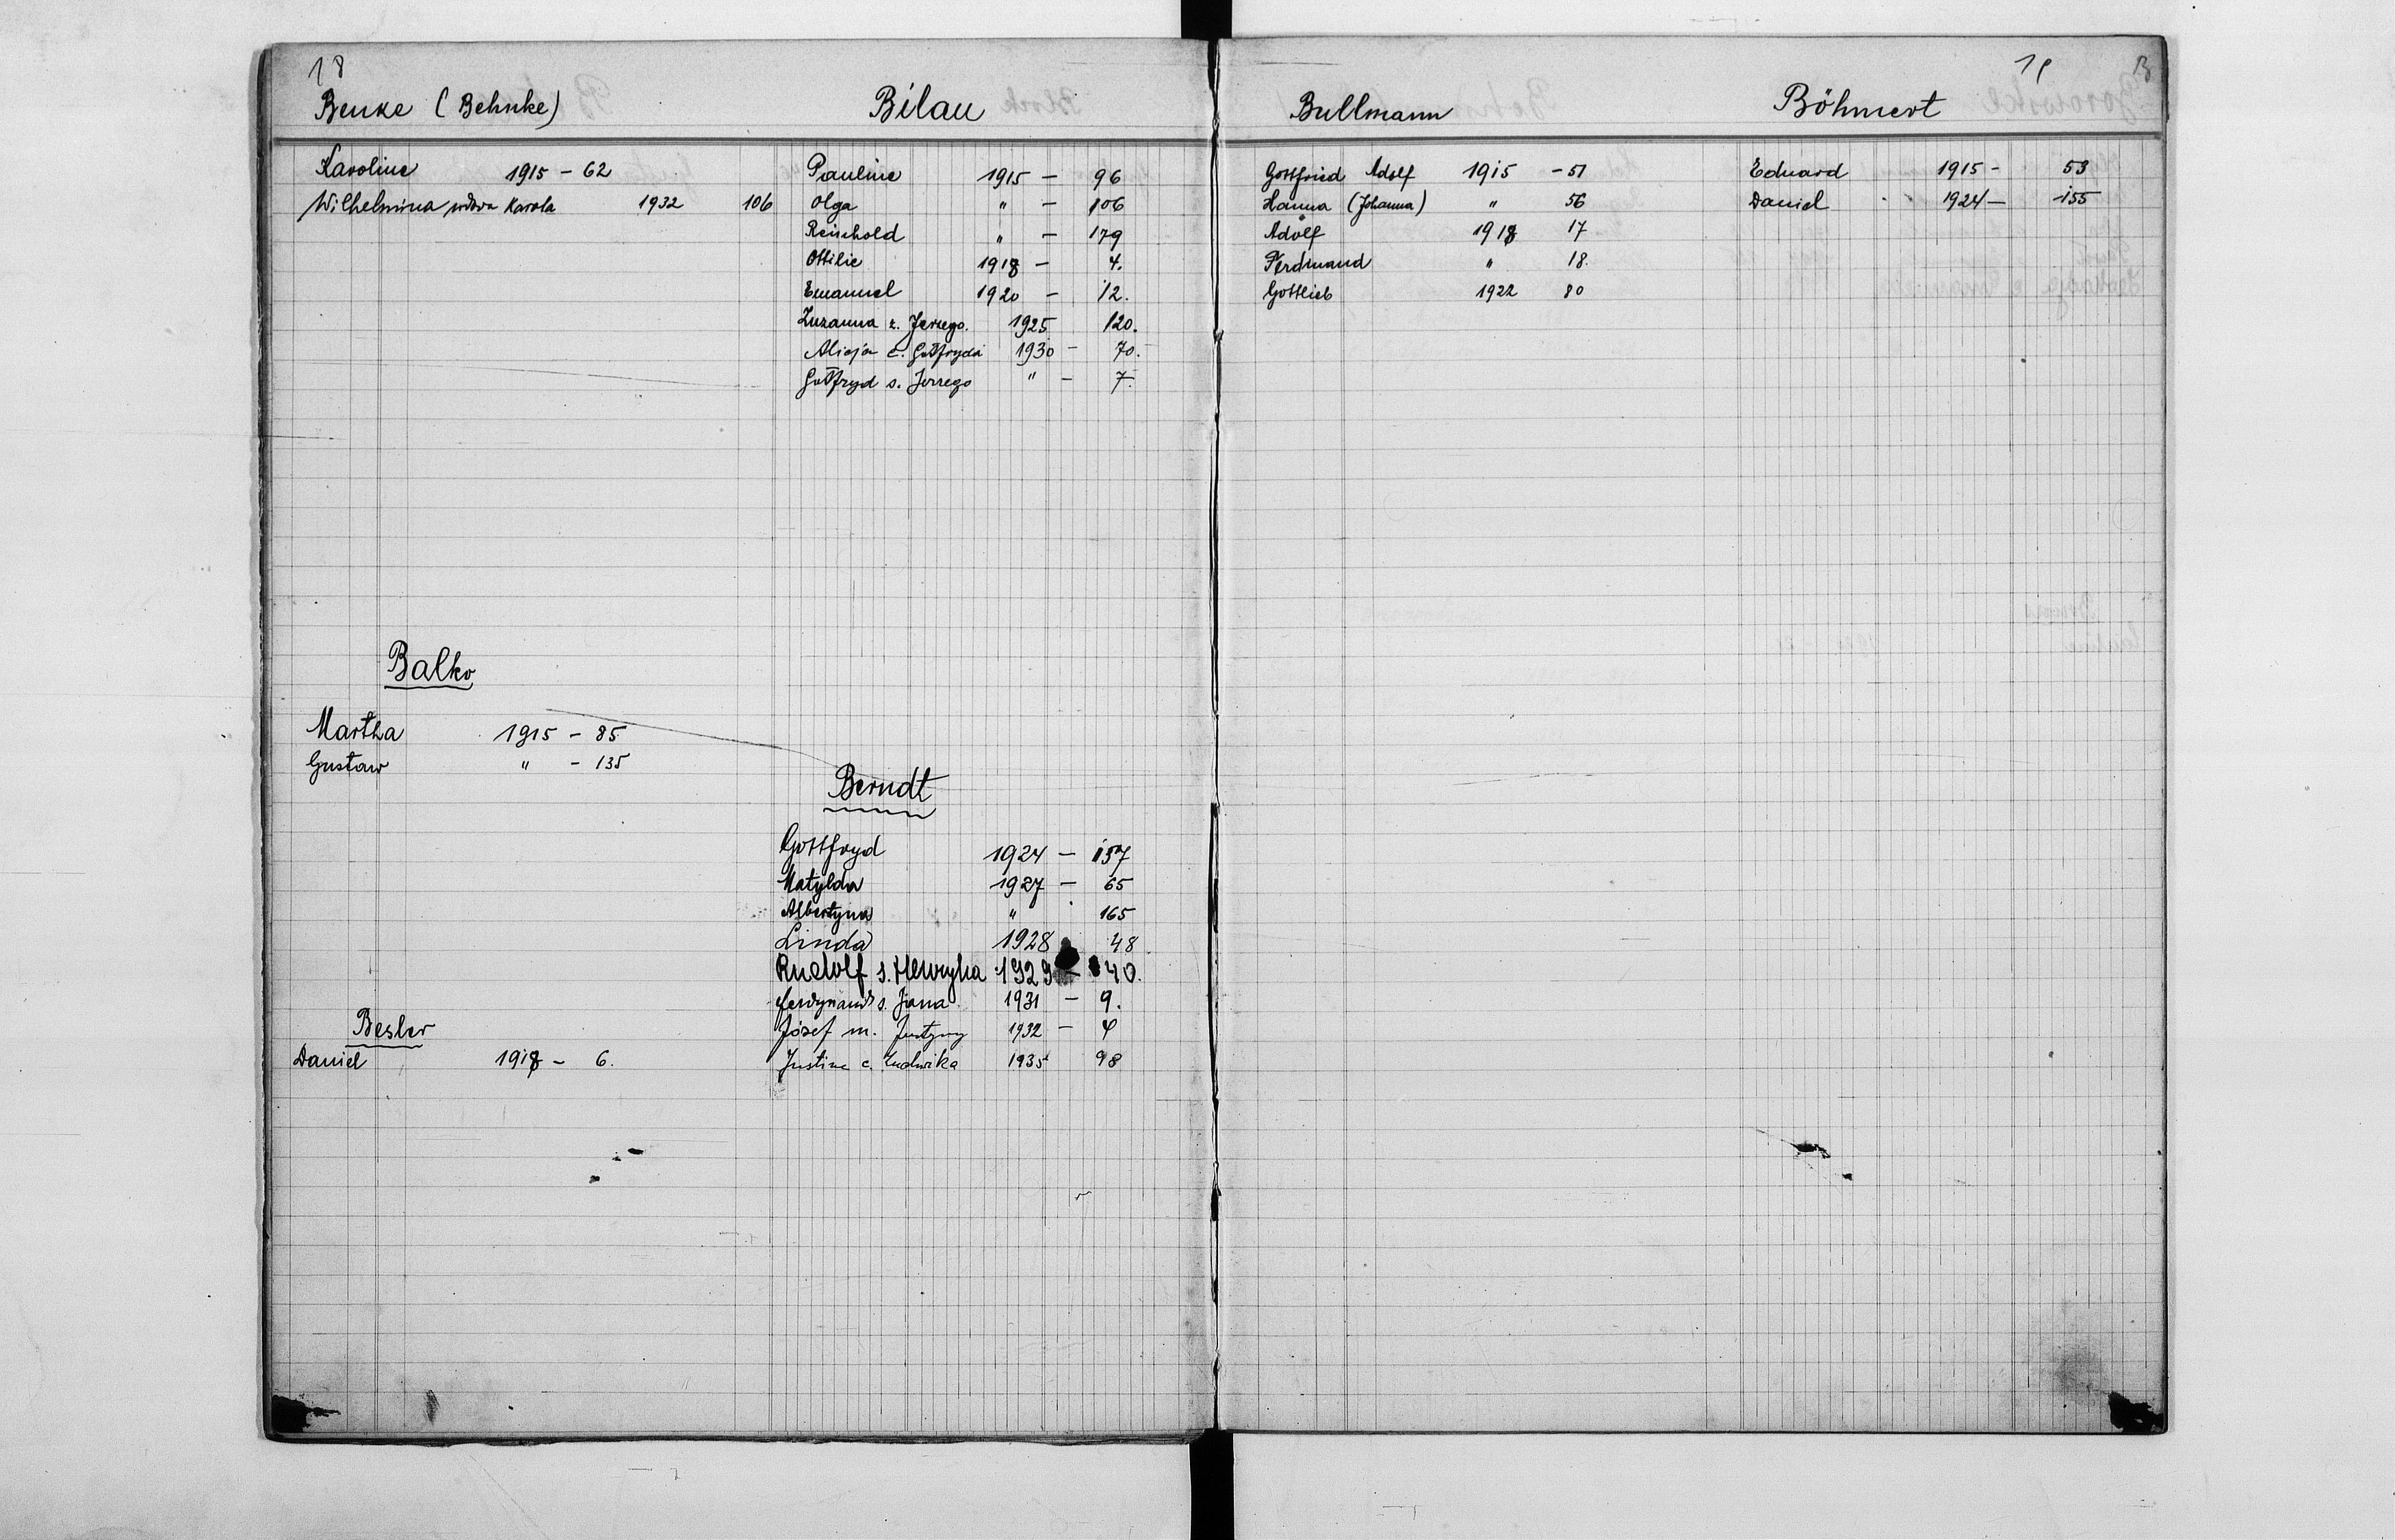 18
Benke (Behnke)
Karoline 1915 - 62
Wilhelmina wdowa Karola 1932 106
Balko
Martha 1915 - 85
Gustaw " - 135
Besler
Daniel 1918 - 6.
Bilau
Pauline 1915 - 96
Olga " - 106
Reinhold " - 179
Ottilie 1918 - 4.
Emanuel 1920 - 12.
Zuzanna ż. Jerzego. 1925 120.
Alicja c. Gotfryda 1930 - 70.
Gotfryd s. Jerzego " - 7.
Berndt
Gottfryd 1924 - 157
Matylda 1927 - 65
Albertyna " 165
Linda 1928 48
Rudolf s. Henryka 1929 - 40.
Ferdynand s. Jana 1931 - 9.
Józef m. Justyny 1932 - 4
Justine c. Ludwika 1935 98
B
Bullmann
Gottfried Adolf 1915 - 51
Hanna (Johanna) " 56
Adolf 1918 17
Ferdinand " 18.
Gottlieb 1922 80
Böhmert
Eduard 1915 - 53
Daniel 1924 - 155